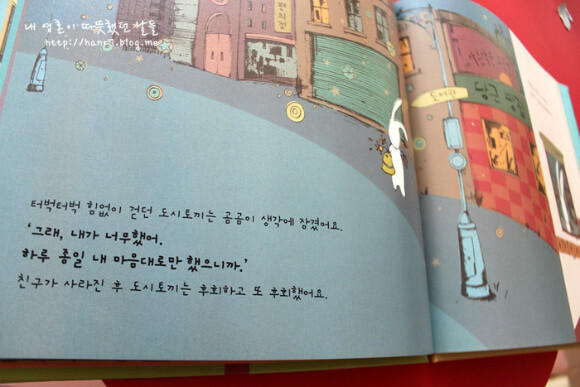 내 영혼이 따뜻했던 날들
http://hans1.blog.me
편의점
도서관
당근 빵집
터벅터벅 힘없이 걷던 도시토끼는 곰곰이 생각에 잠겼어요.
‘그래, 내가 너무했어.
하루 종일 내 마음대로만 했으니까.’
친구가 사라진 후 도시토끼는 후회하고 또 후회했어요.